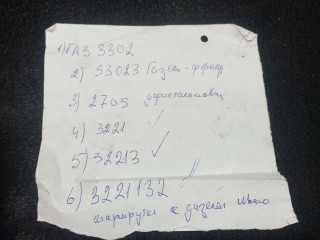 1) ГАЗ 3302
2) 33023 Газель-фермер
3) 2705
4) 3221
5) 32213
6) 3221132
маршрутки